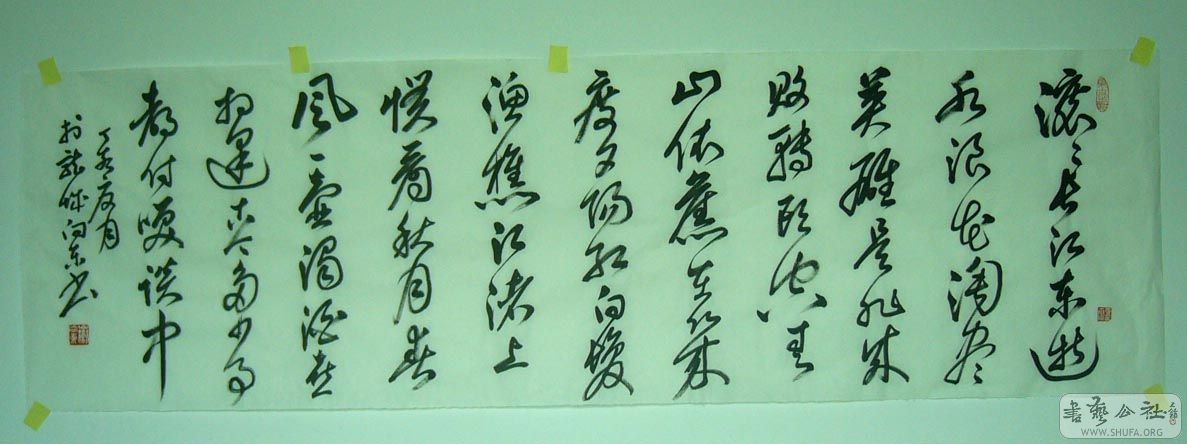 滚々长江东逝
水浪花淘尽
英雄是非成
败转头空青
山依舊在几
度夕阳红白发
渔樵江渚上
惯看秋月春
风一壶浊酒喜
相逢古今多少事
都付笑谈中
丁亥夏月
向东书
书艺公社
WWW.SHUFA.ORG